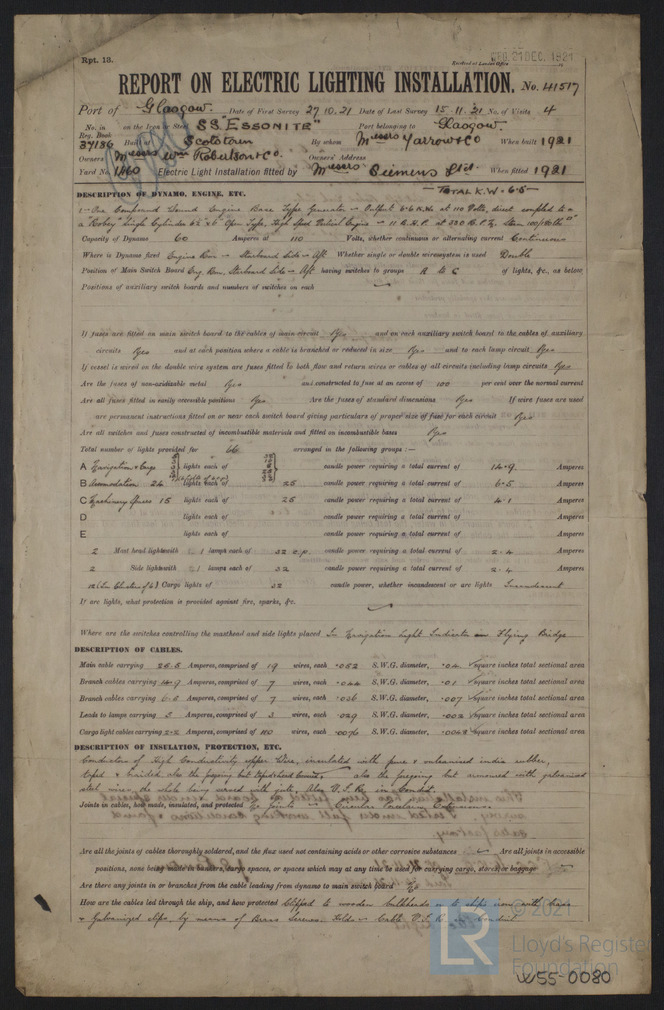 Rpt. 13.
21 DEC. 1921
REPORT ON ELECTRIC LIGHTING INSTALLATION. No. 41517
Port of Glasgow. Date of First Survey 27.10.21 Date of Last Survey 15.11.21 No. of Visits 4
No. in Reg. Book 37186 on the Iron or Steel S.S. "ESSONITE" Port belonging to Glasgow.
Built at Scotstoun By whom Messrs Yarrow & Co When built 1921
Owners Messrs Wm Robertson & Co. Owners' Address
Yard No. 1460 Electric Light Installation fitted by Messrs Siemens Ltd. When fitted 1921
DESCRIPTION OF DYNAMO, ENGINE, ETC. TOTAL K.W. 6.5
One Compound Wound Engine Base Type Generator Output 6.6 K.W. at 110 Volts, direct coupled to a
"Robey" Single Cylinder Open Type High Speed Vertical Engine 11 B.H.P. at
Capacity of Dynamo 60 Amperes at 110 Volts, whether continuous or alternating current Continuous
Where is Dynamo fixed Engine Room Starboard Side Aft Whether single or double wire system is used Double
Position of Main Switch Board Eng. Room, Starboard Side Aft having switches to groups A to C of lights, &c., as below
Positions of auxiliary switch boards and numbers of switches on each
If fuses are fitted on main switch board to the cables of main circuit Yes and on each auxiliary switch board to the cables of auxiliary
circuits Yes and at each position where a cable is branched or reduced in size Yes and to each lamp circuit Yes
If vessel is wired on the double wire system are fuses fitted to both flow and return wires or cables of all circuits including lamp circuits Yes
Are the fuses of non-oxidizable metal Yes and constructed to fuse at an excess of 100 per cent over the normal current
Are all fuses fitted in easily accessible positions Yes Are the fuses of standard dimensions Yes If wire fuses are used
are permanent instructions fitted on or near each switch board giving particulars of proper size of fuse for each circuit Yes
Are all switches and fuses constructed of incombustible materials and fitted on incombustible bases Yes
Total number of lights provided for 66 arranged in the following groups :—
A Navigation & Cargo lights each of candle power requiring a total current of 14.9 Amperes
B Accomodation 24 lights each of 25 candle power requiring a total current of 6.5 Amperes
C Machinery Spaces 15 lights each of 25 candle power requiring a total current of 4.1 Amperes
D lights each of candle power requiring a total current of Amperes
E lights each of candle power requiring a total current of Amperes
2 Mast head light with 1 lamps each of 32 c.p. candle power requiring a total current of 2.4 Amperes
2 Side light with 1 lamps each of 32 candle power requiring a total current of 2.4 Amperes
12 (In Clusters of 6) Cargo lights of 32 candle power, whether incandescent or arc lights Incandescent
If arc lights, what protection is provided against fire, sparks, &c.
Where are the switches controlling the masthead and side lights placed In Navigation Light Indicator on Flying Bridge
DESCRIPTION OF CABLES.
Main cable carrying 25.5 Amperes, comprised of 19 wires, each .052 S.W.G. diameter, .04 square inches total sectional area
Branch cables carrying 14.9 Amperes, comprised of 7 wires, each .044 S.W.G. diameter, .01 square inches total sectional area
Branch cables carrying 6.5 Amperes, comprised of 7 wires, each .036 S.W.G. diameter, .007 square inches total sectional area
Leads to lamps carrying 3 Amperes, comprised of 3 wires, each .029 S.W.G. diameter, .002 square inches total sectional area
Cargo light cables carrying 2.2 Amperes, comprised of 110 wires, each .0076 S.W.G. diameter, .0048 square inches total sectional area
DESCRIPTION OF INSULATION, PROTECTION, ETC.
Conductors of High Conductivity copper Wire, insulated with pure & vulcanised india rubber,
taped & braided also the foregoing but taped & lead covered, also the foregoing but armoured with galvanised
steel wire, the whole being served with jute. Also V.I.R. in Conduit.
Joints in cables, how made, insulated, and protected No Joints Porcelain Connectors.
Are all the joints of cables thoroughly soldered, and the flux used not containing acids or other corrosive substances Are all joints in accessible
positions, none being made in bunkers, cargo spaces, or spaces which may at any time be used for carrying cargo, stores, or baggage
Are there any joints in or branches from the cable leading from dynamo to main switch board No
How are the cables led through the ship, and how protected Clipped to wooden bulkheads or to ships iron with brass
& Galvanized clips, by means of Brass Screws. Holds Cable V.I.R. in Conduit
© 2021
LR Lloyd's Register
Foundation
W55-0080